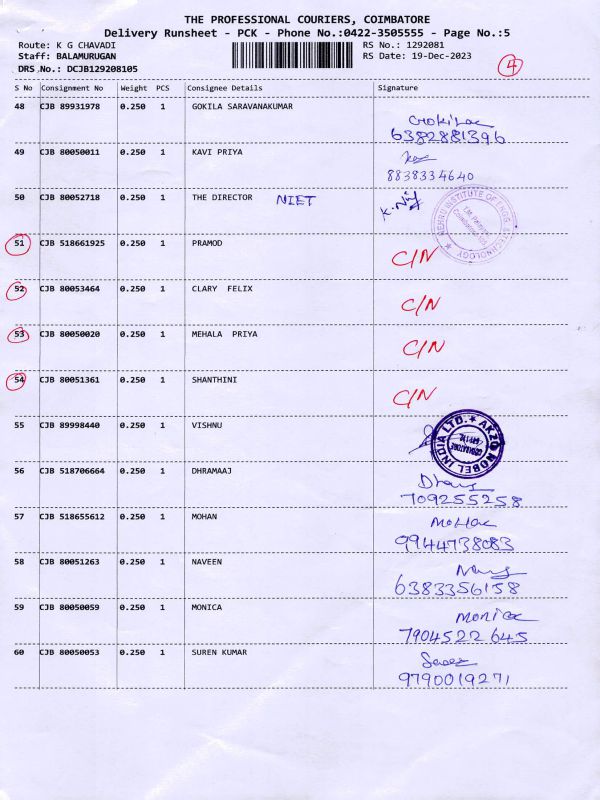 THE PROFESSIONAL COURIERS, COIMBATORE
Delivery Runsheet - PCK - Phone No.:0422-3505555 - Page No.:5
Route: K G CHAVADI RS No.: 1292081
Staff: BALAMURUGAN RS Date: 19-Dec-2023
DRS No.: DCJB129208105 4
S No Consignment No Weight PCS Consignee Details Signature
48 CJB 89931978 0.250 1 GOKILA SARAVANAKUMAR
Gokilae
6382881396
49 CJB 80050011 0.250 1 KAVI PRIYA
8838334640
50 CJB 80052718 0.250 1 THE DIRECTOR NIET
NEHRU INSTITUTE OF ENGG. & TECHNOLOGY
51 CJB 518661925 0.250 1 PRAMOD
C/N
52 CJB 80053464 0.250 1 CLARY FELIX
C/N
53 CJB 80050020 0.250 1 MEHALA PRIYA
C/N
54 CJB 80051361 0.250 1 SHANTHINI
C/N
55 CJB 89998440 0.250 1 VISHNU
AKZO NOBEL INDIA LTD.
COIMBATORE
56 CJB 518706664 0.250 1 DHRAMAAJ
709255258
57 CJB 518655612 0.250 1 MOHAN
9944738083
58 CJB 80051263 0.250 1 NAVEEN
6383356158
59 CJB 80050059 0.250 1 MONICA
Monica
7904522645
60 CJB 80050053 0.250 1 SUREN KUMAR
9790019271